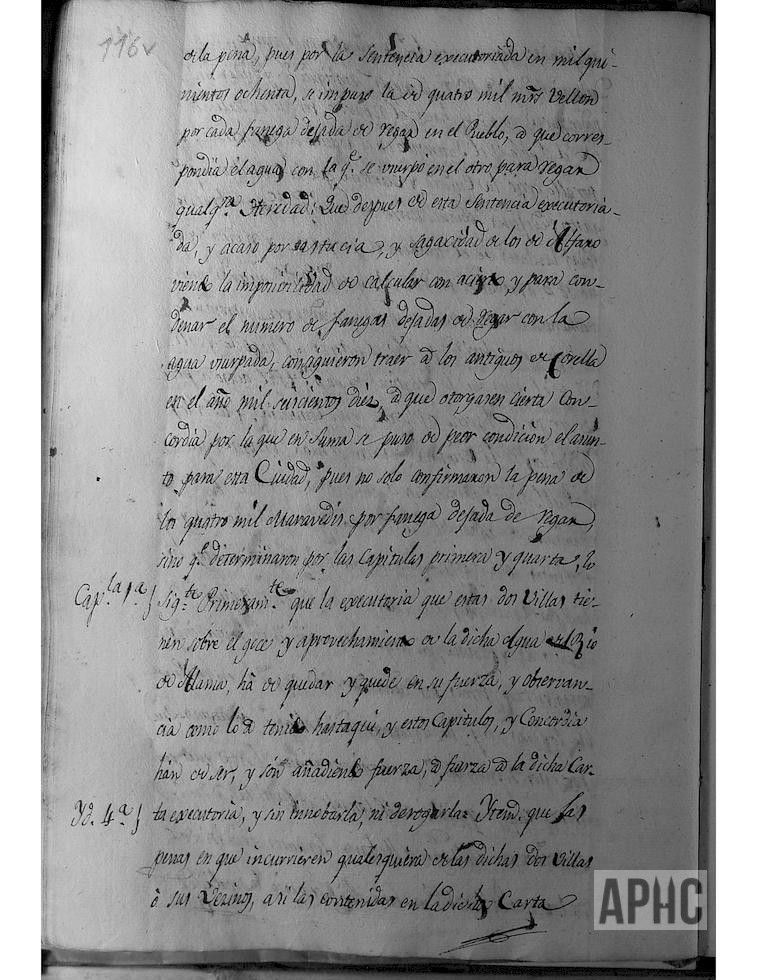 116v
de la pena, pues por la Sentencia executoriada en mil qui-
nientos ochenta, se impuso la de quatro mil mrs Vellon
por cada fanega dejada de regar en el Pueblo, à que corres-
pondia el agua, con la q.e se vsurpò en el otro para regar
qualq.ra Heredad: Que despues de esta Sentencia executoria-
da, y acaso por astucia, y sagacidad de los de Alfaro
viendo la imposivilidad de calcular con acierto, y para con-
denar el numero de fanegas dejadas de regar con la
agua vsurpada, consiguieron traer à los antiguos de Corella
en el año mil seiscientos diez, à que otorgasen cierta Con-
cordia por la que en suma se puso de peor condicion el asun-
to para esta Ciudad, pues no solo confirmaron la pena de
los quatro mil Maravedis por fanega dejada de regar,
sino q.e determinaron por las Capitulas primera y quarta, lo
Cap.la 1.a } Sig.te Primeram.te que la executoria que estas dos Villas tie-
nen sobre el goce y aprovechamiento de la dicha Agua del Rio
de Alama, hà de quedar y quede en su fuerza, y observan-
cia como lo à tenido hasta qui, y estos Capitulos, y Concordia
hàn de ser, y són añadiendo fuerza, à fuerza à la dicha Car-
Yd. 4.a } ta executoria, y sin innobarla, ni derogarla: Ytem que las
penas en que incurrieren qualesquiera de las dichas dos Villas
ò sus Vezinos, asi las contenidas en la dicha Carta
APHC